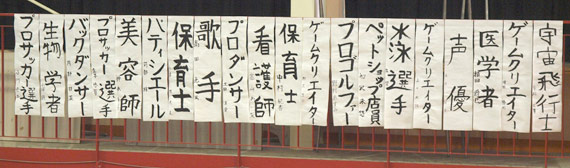 宇宙飛行士
ゲームクリエイター
医学者
声優
ゲームクリエイター
水泳選手
ペットショップ店員
プロゴルファー
ゲームクリエイター
保育士
看護師
プロダンサー
歌手
保育士
パティシエール
美容師
プロサッカー選手
バックダンサー
生物学者
プロサッカー選手